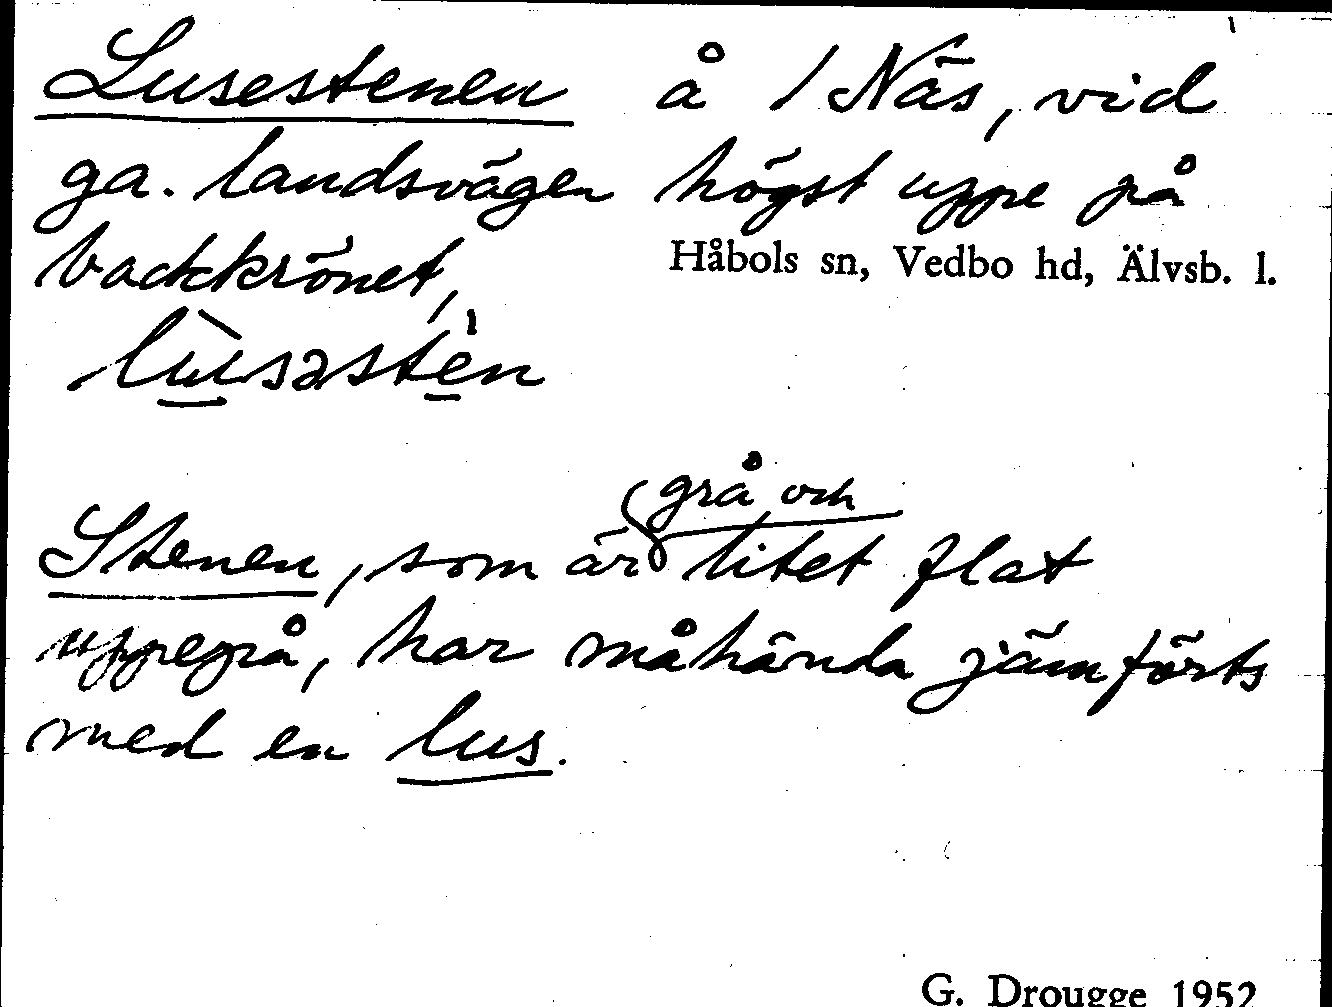 Lusestenen å 1 Näs, vid
ga. landsvägen högst uppe på
backkrönet,
Håbols sn, Vedbo hd, Älvsb. l.
lùsəstèn
grå och
Stenen, som är litet flat
uppepå, har måhända jämförts
med en lus.
G. Drougge 1952